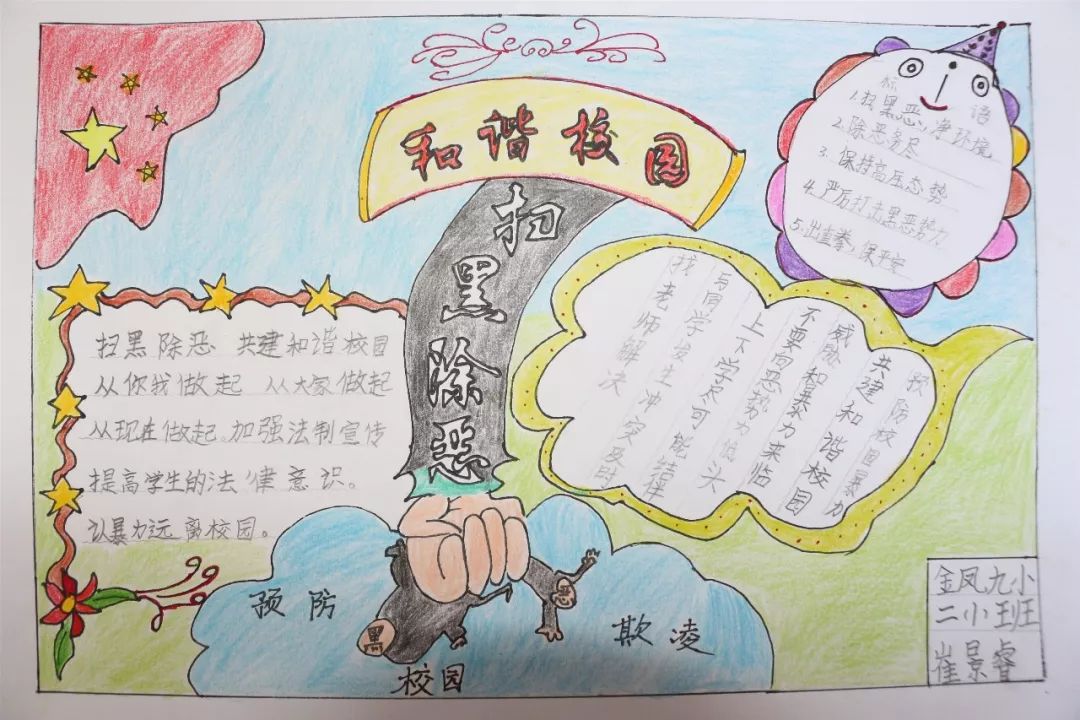 和谐校园
扫黑除恶
扫黑除恶 共建和谐校园
从你我做起 从大家做起
从现在做起。加强法制宣传
提高学生的法律意识。
认暴力远离校园。
标语
1.扫黑恶,净环境
2.除恶务尽
3.保持高压态势
4.严厉打击黑恶势力
5.出重拳,保平安
预防校园暴力
共建和谐校园
威胁智暴力来临
不要向恶势力低头
上下学尽可能结伴
与同学发生冲突及时
找老师解决
预防
校园
欺凌
黑
恶
金凤九小
二小班
崔景睿